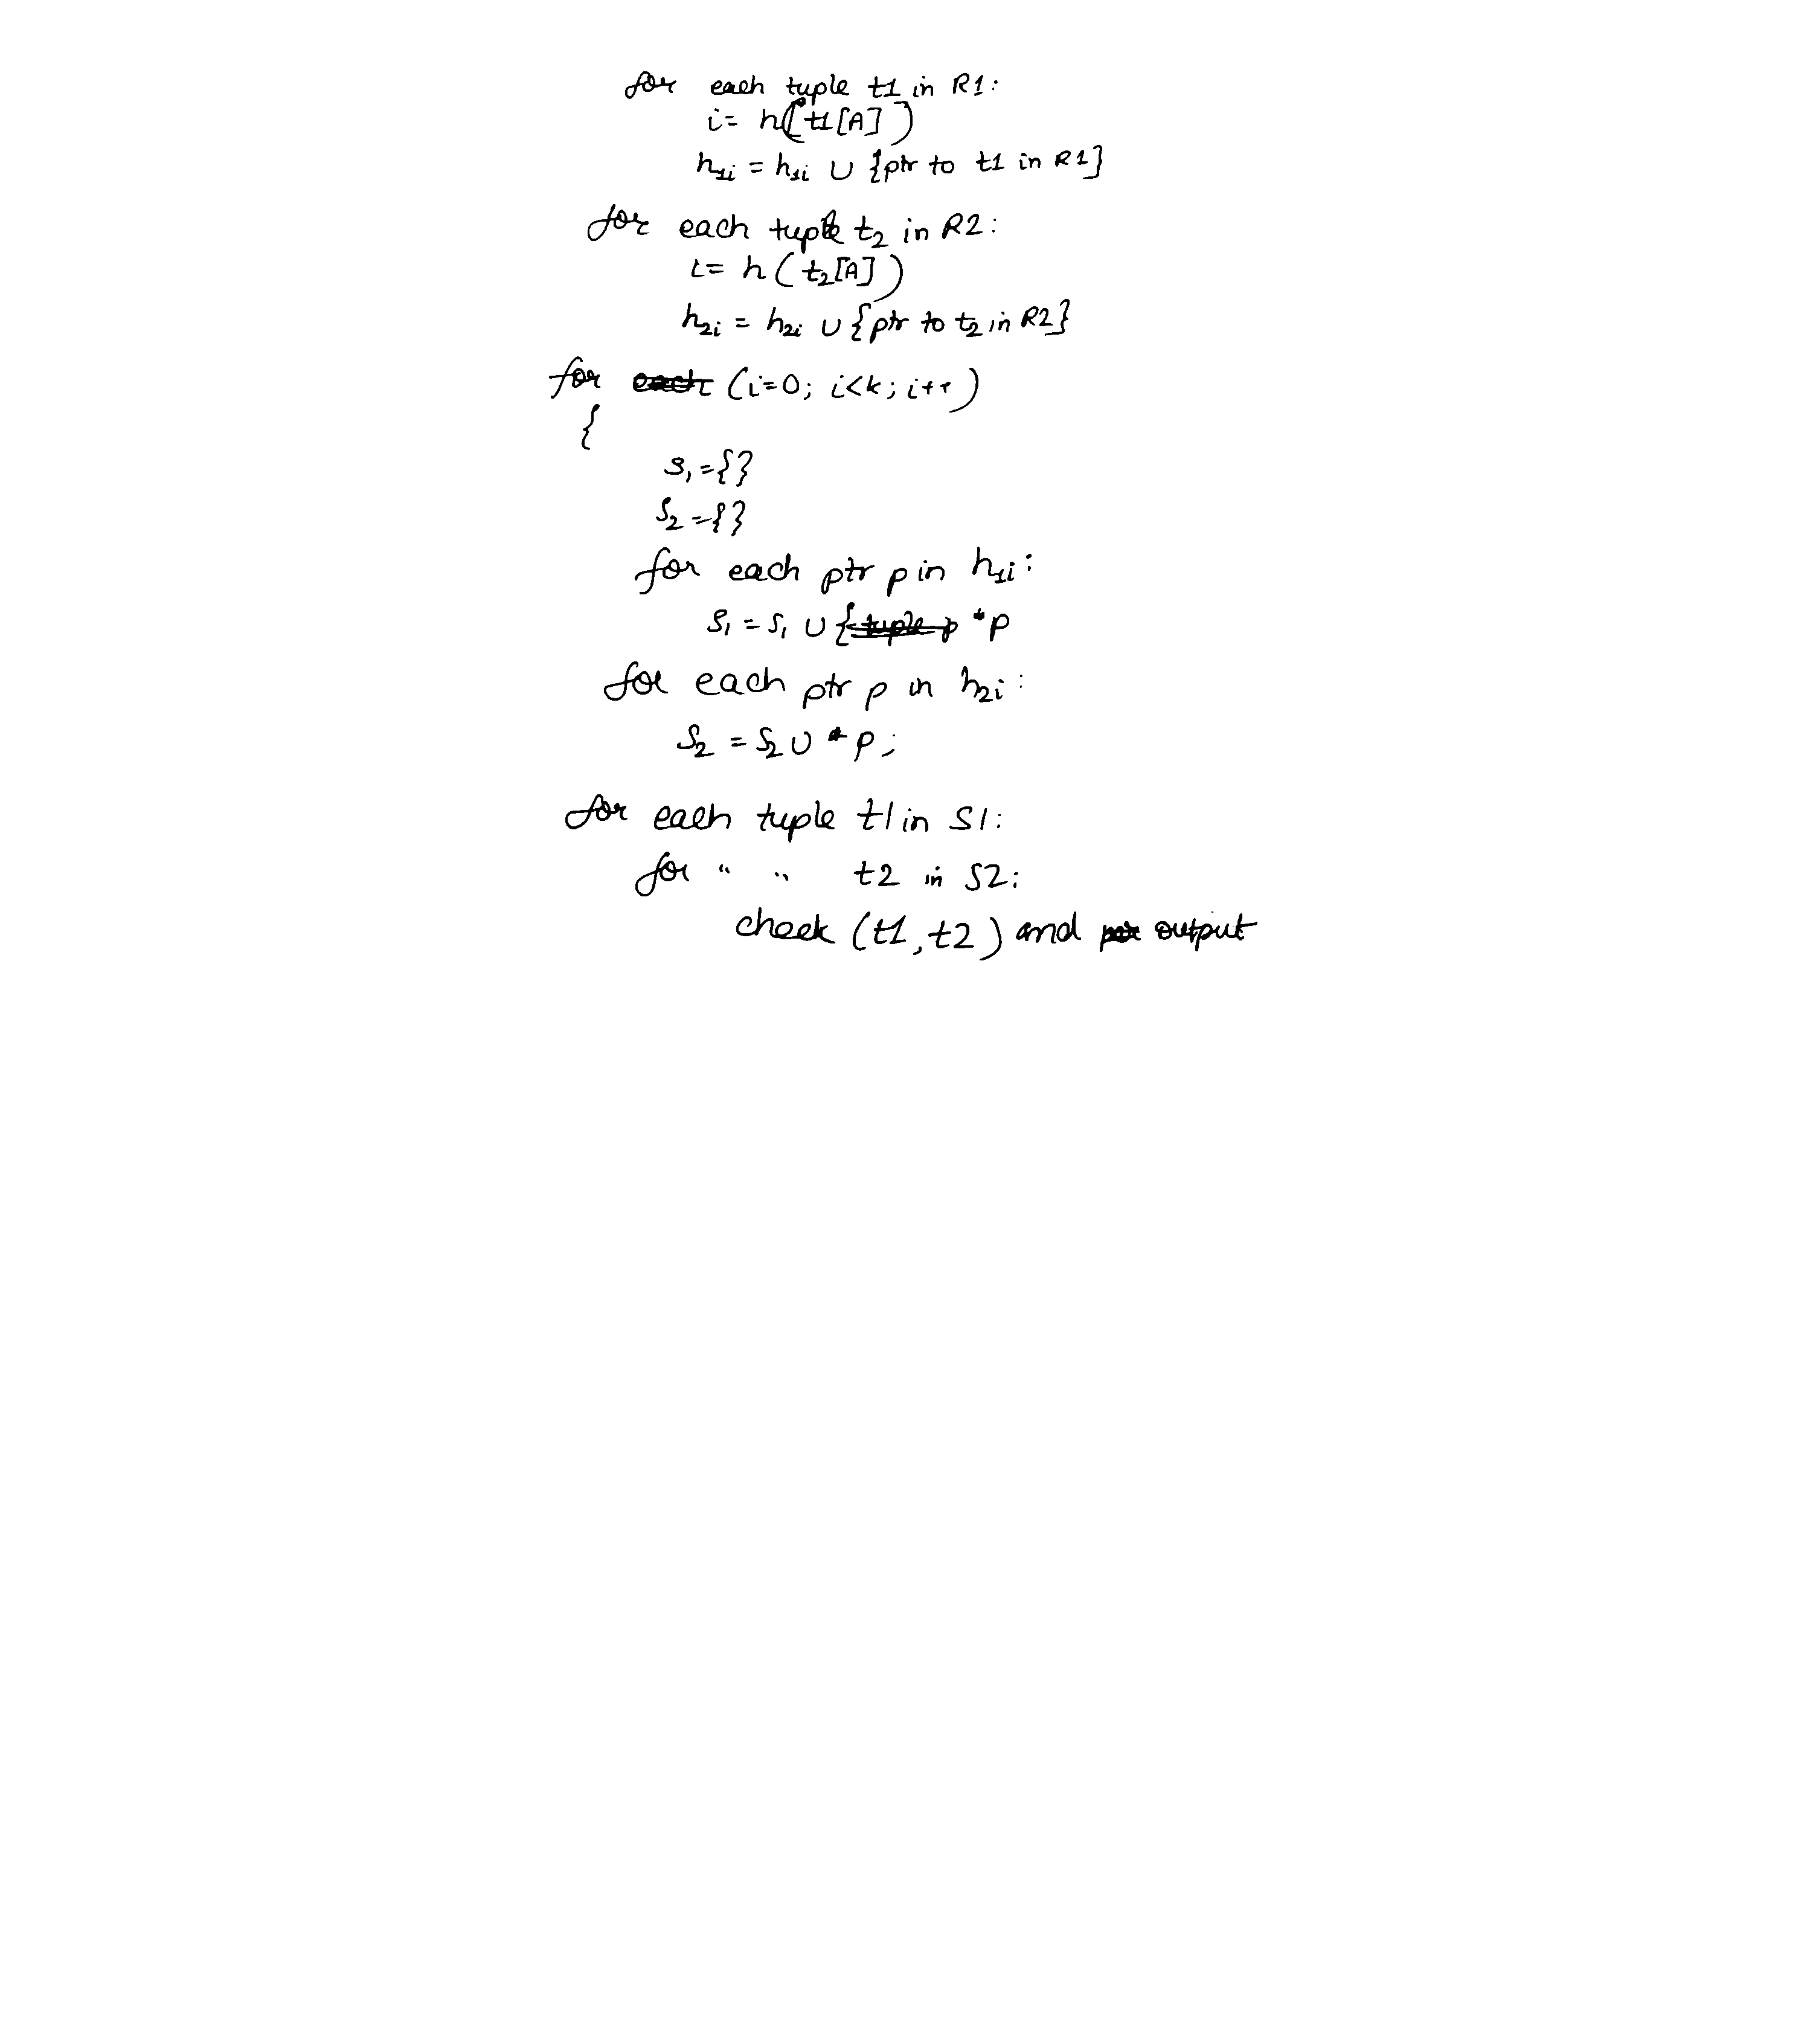 for each tuple t1 in R1:
i= h(t1[A])
h1i = h1i ∪ {ptr to t1 in R1}
for each tuple t2 in R2:
i= h(t2[A])
h2i = h2i ∪ {ptr to t2 in R2}
for each (i=0; i<k; i++)
{
S1={}
S2={}
for each ptr p in h1i:
S1 = S1 ∪ {tuple p *p
for each ptr p in h2i:
S2 = S2 ∪ *p;
for each tuple t1 in S1:
for " " t2 in S2:
check (t1, t2) and output